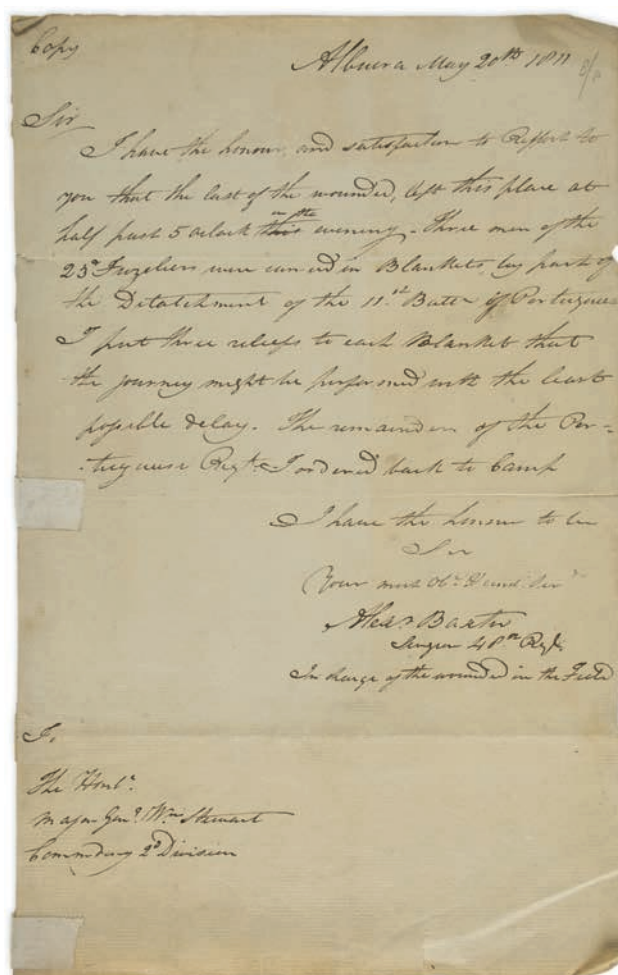 Copy
Albuera May 20th 1811
Sir
I have the honour, and satisfaction to Report to
you that the last of the wounded, left this place at
in the
half past 5 oclock this evening. Three men of the
23d Fuzeliers were carried in Blankets, by part of
the Detatchment of the 11th Batn of Portuguese
I put three reliefs to each Blanket that
the journey might be performed with the least
possible delay. The remainder of the Por=
=tuguese Regt I ordered back to Camp
I have the honour to be
Sir
Your most Obt Humb Sert
Alexr Baxter
Surgeon 48th Regt
In charge of the wounded in the Field
To
The Honble
Major Genl Wm Stewart
Commding 2d Division